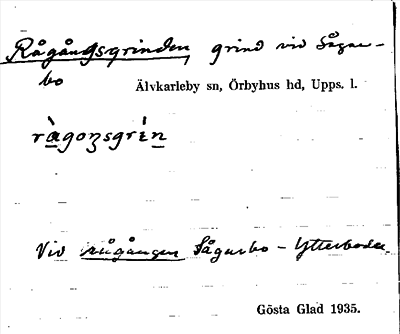 Rågångsgrinden, grind vid Sågar-
bo
Älvkarleby sn, Örbyhus hd, Upps. l.
rågoŋsgrìn
Vid rågången Sågarbo - Ytterboda.
Gösta Glad 1935.